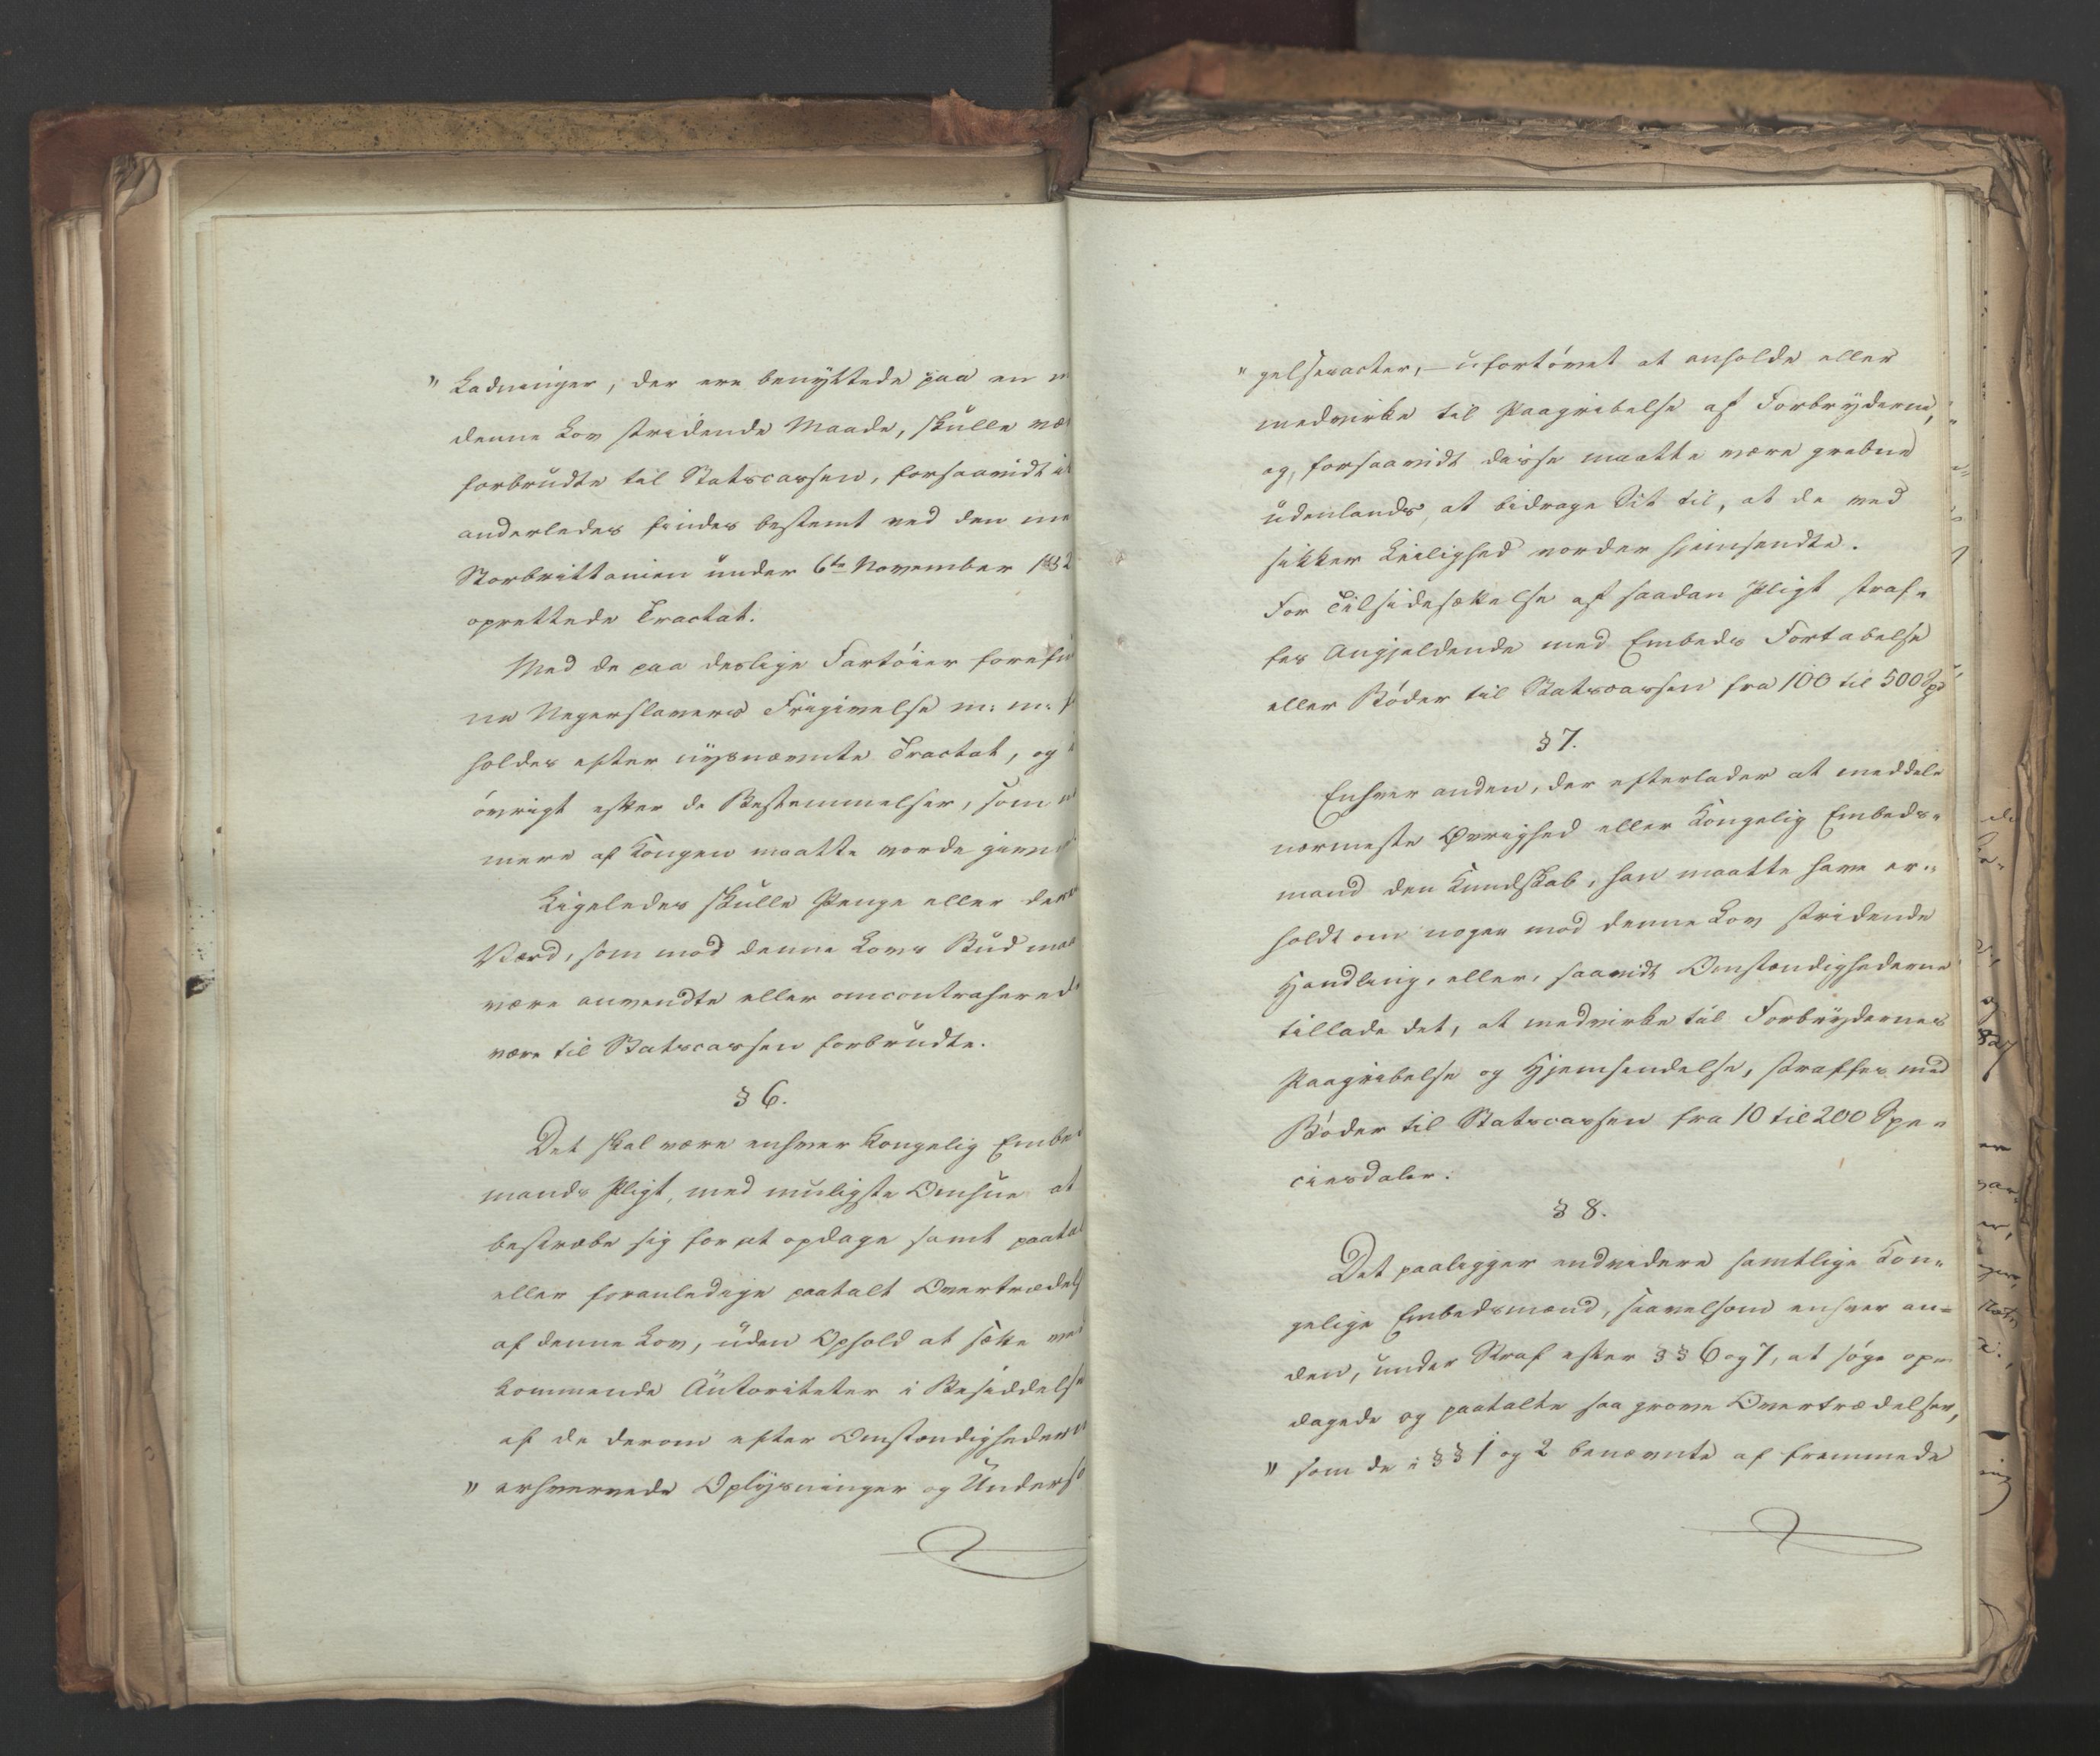 " Ladninger, der ere benyttede paa en m
denne Lov stridende Maade, skulle vær
forbrudte til Statscassen, forsaavidt ik
anderledes findes bestemt ved den me
Storbrittanien under 6te November 1832
oprettede Tractat.
Med de paa deslige Fartöier forefun
ne Negerslavers Frigivelse m: m: f
holdes efter nysnævnte Tractat, og i
övrigt efter de Bestemmelser, som n
mere af Kongen maatte vorde givne
Ligeledes skulle Penge eller deres
Værd, som mod denne Lovs Bud maa
være anvendte eller omcontraherede
være til Statscassen forbrudte.
§ 6.
Det skal være enhver Kongelig Embed
mands Pligt, med muligste Omhue at
bestræbe sig for at opdage samt paatal
eller foranledige paatalt Overtrædels
af denne Lov, uden Ophold at sætte ved
kommende Autoriteter i Besiddelse
af de derom efter Omstændighederne
" erhvervede Oplysninger og Undersö
" gelsesacter, – ufortövet at anholde eller
medvirke til Paagribelse af Forbryderne,
og, forsaavidt disse maatte være grebne
udenlands, at bidrage Sit til, at de ved
sikker Leilighed vorder hjemsendte.
For Tilsidesættelse af saadan Pligt straf-
fes Angjeldende med Embeds Fortabelse
eller Böder til Statscassen fra 100 til 500 Spd
§ 7.
Enhver anden, der efterlader at meddele
nærmeste Øvrighed eller Kongelig Embeds-
mand den Kundskab, han maatte have er-
holdt om nogen mod denne Lov stridende
Handling, eller, saavidt Omstændighederne
tillade det, at medvirke til Forbrydernes
Paagribelse og Hjemsendelse, straffes med
Böder til Statscassen fra 10 til 200 Spe-
ciesdaler.
§ 8.
Det paaligger endvidere samtlige Kon-
gelige Embedsmænd, saavelsom enhver an-
den, under Straf efter §§ 6 og 7, at söge op-
dagede og paatalte saa grove Overtrædelser,
" som de i §§ 1 og 2 benævnte af fremmede